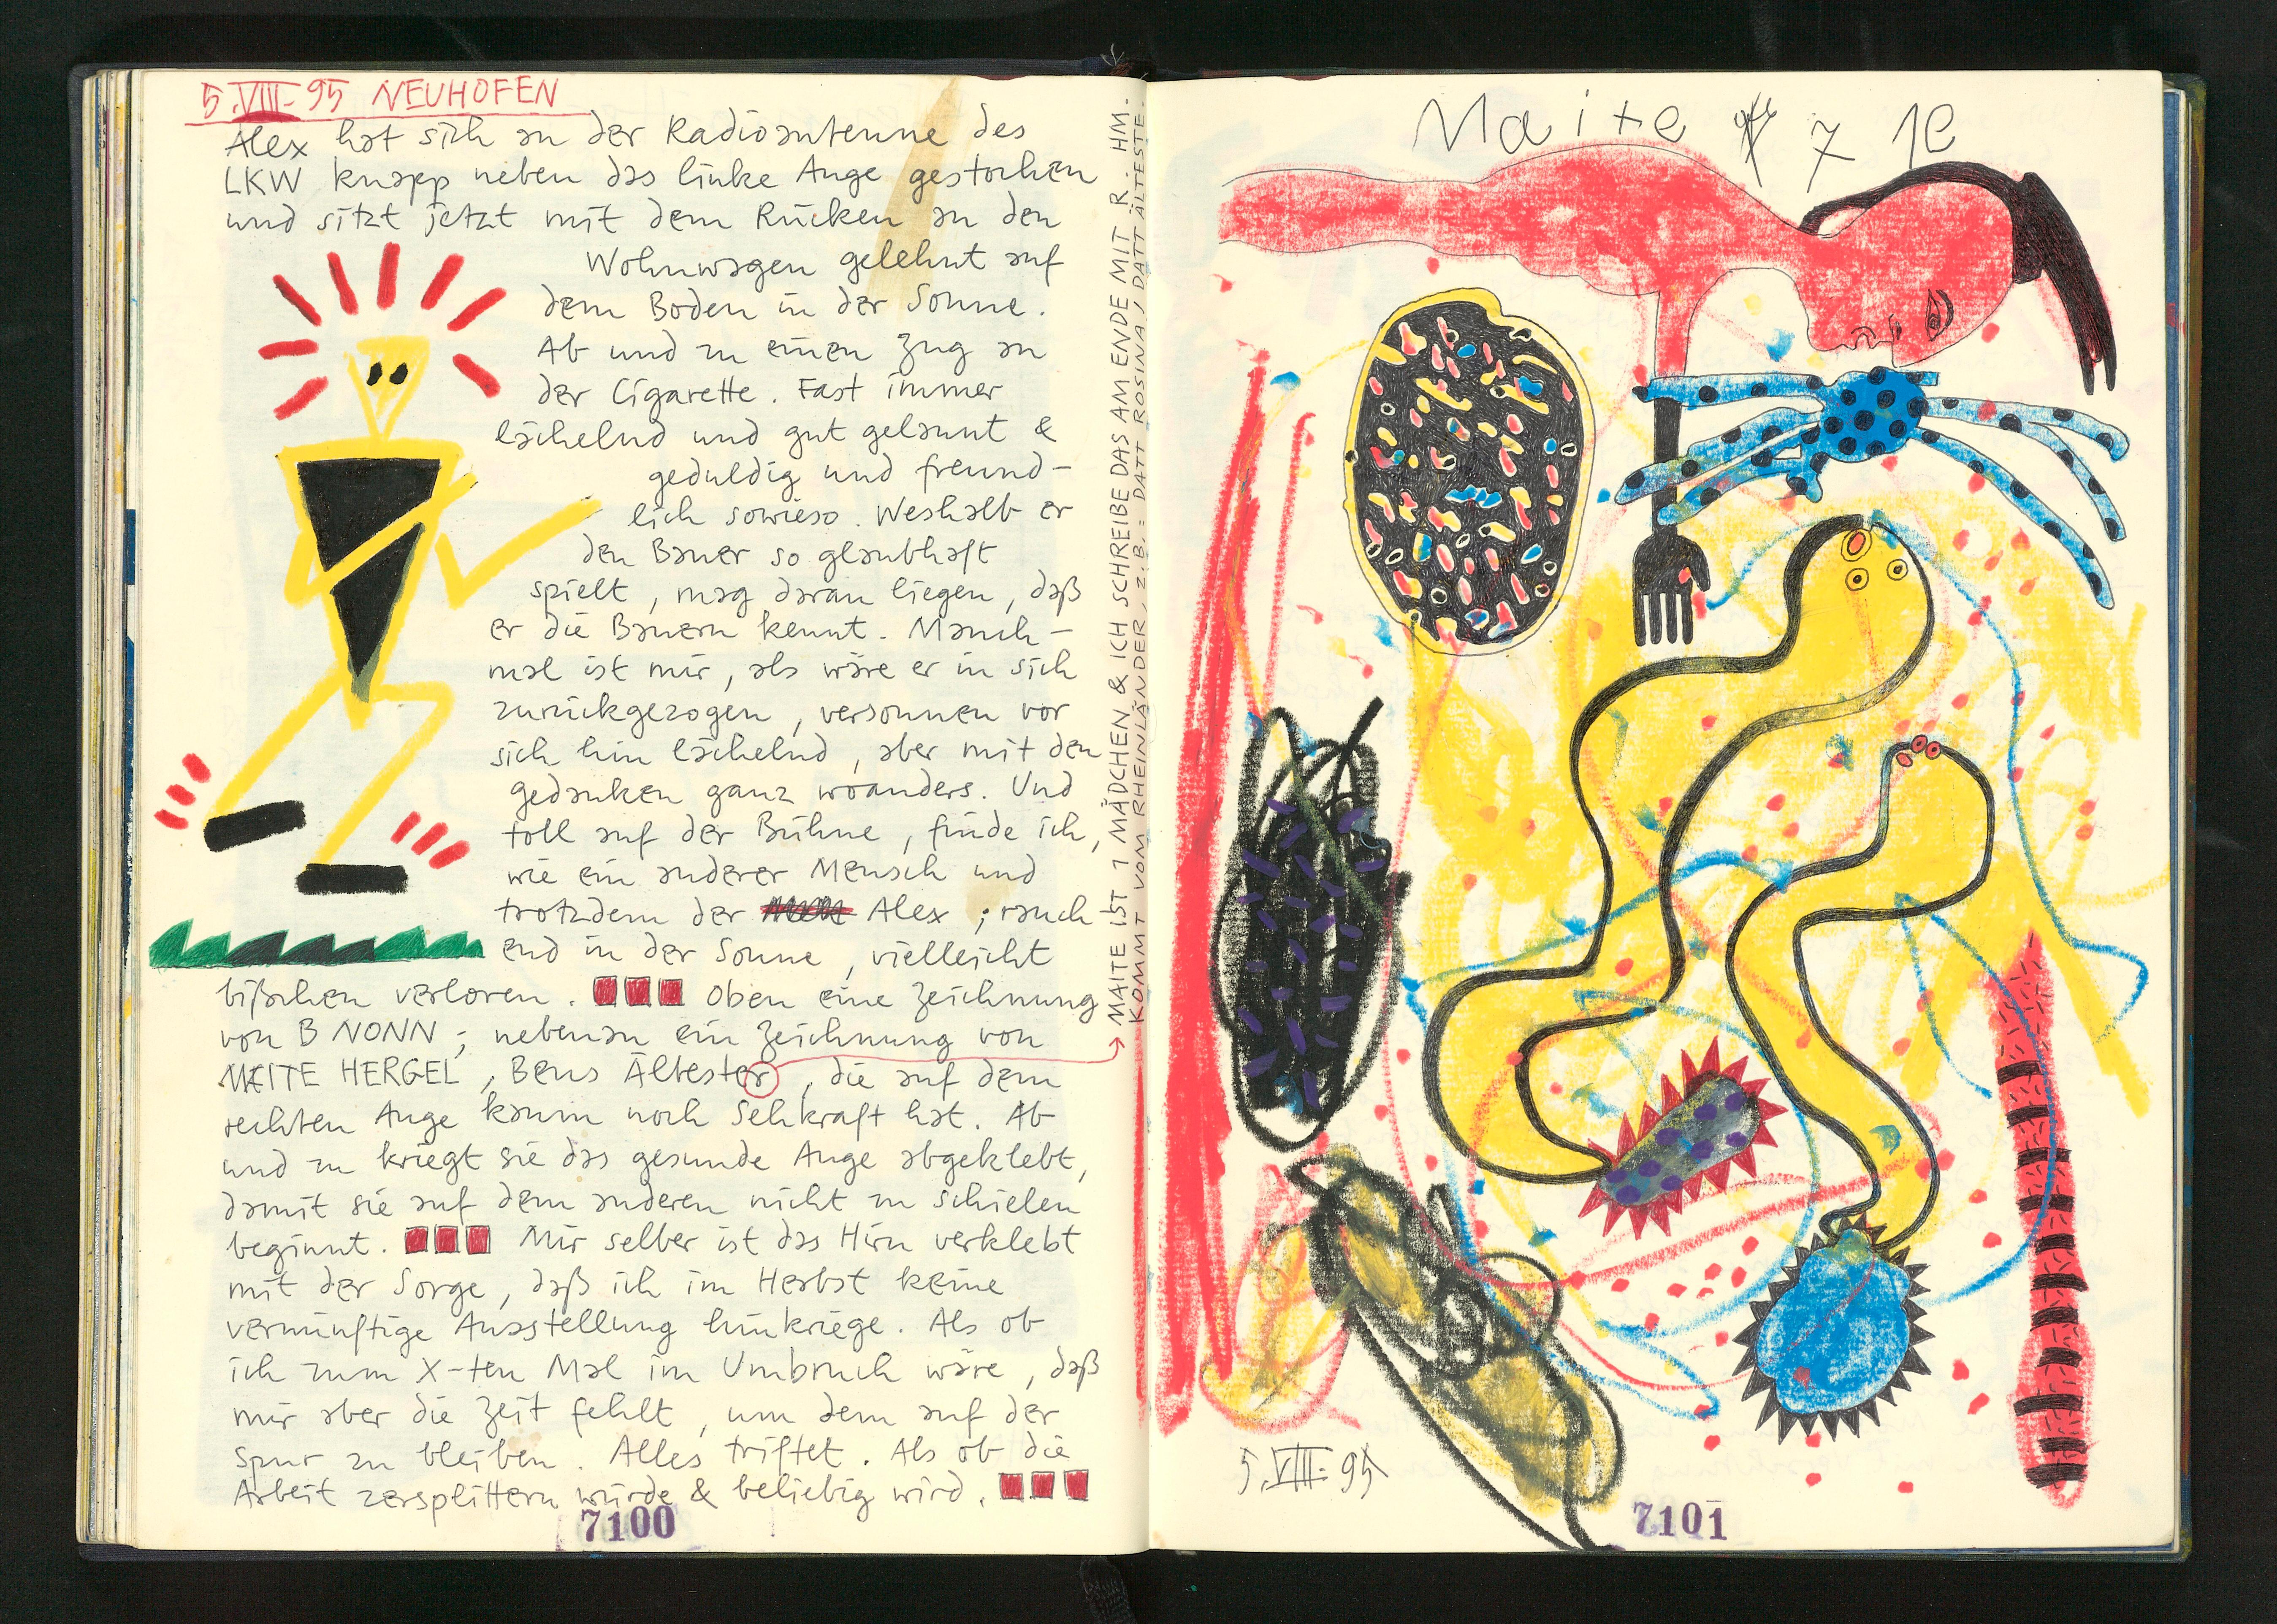 5.VIII.95 NEUHOFEN
Alex hat sich an der Radioantenne des
LKW knapp neben das linke Auge gestochen
und sitzt jetzt mit dem Rücken an den
Wohnwagen gelehnt auf
dem Boden in der Sonne.
Ab und zu einen Zug an
der Cigarette. Fast immer
lächelnd und gut gelaunt &
geduldig und freund-
lich sowieso. Weshalb er
den Bauer so glaubhaft
spielt, mag daran liegen, daß
er die Bauern kennt. Manch-
mal ist mir, als wäre er in sich
zurückgezogen, versonnen vor
sich hin lächelnd, aber mit den
gedanken ganz woanders. Und
toll auf der Bühne, finde ich,
wie ein anderer Mensch und
trotzdem der Alex; rauch-
end in der Sonne, vielleicht
bißchen verloren. Oben eine Zeichnung
von B NONN; nebenan ein Zeichnung von
MAITE HERGEL, Bens Ältester, die auf dem
rechten Auge kaum noch Sehkraft hat. Ab
und zu kriegt sie das gesunde Auge abgeklebt,
damit sie auf dem anderen nicht zu schielen
beginnt. Mir selber ist das Hirn verklebt
mit der Sorge, daß ich im Herbst keine
vernünftige Ausstellung hinkriege. Als ob
ich zum X-ten Mal im Umbruch wäre, daß
mir aber die Zeit fehlt, um dem auf der
Spur zu bleiben. Alles triftet. Als ob die
Arbeit zersplittern würde & beliebig wird.
7100
MAITE IST 1 MÄDCHEN & ICH SCHREIBE DAS AM ENDE MIT R. HM.
KOMMT VOM RHEINLÄNDER, Z.B.: DATT ROSINA, DATT ÄLTESTE.
Maite
5.VIII.95
7101